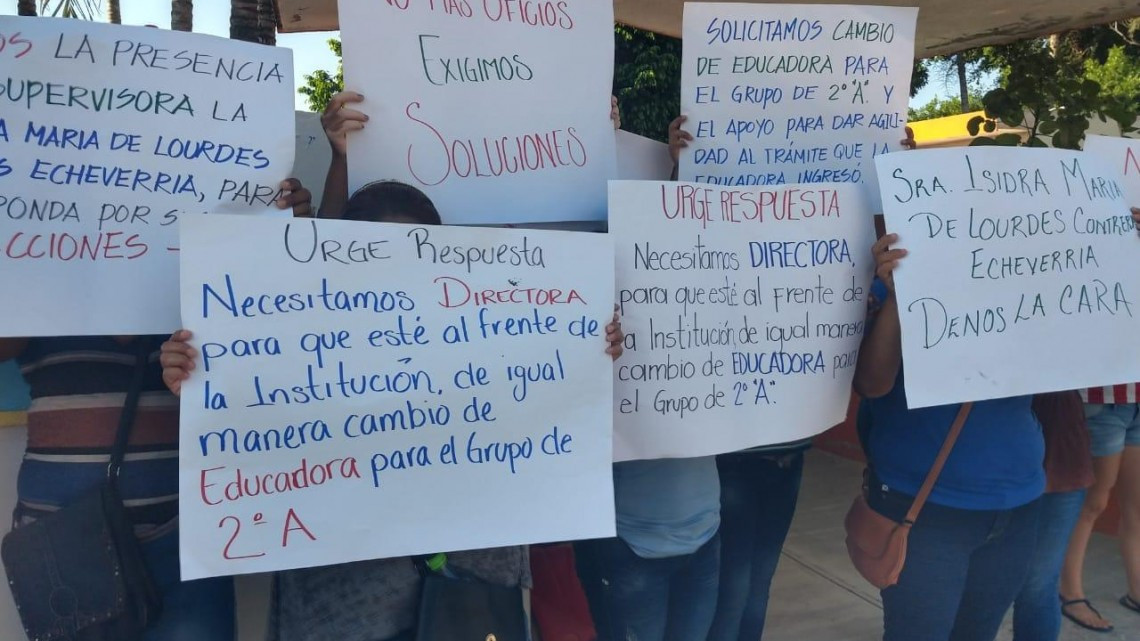 LA PRESENCIA
SUPERVISORA LA
MARIA DE LOURDES
ECHEVERRIA, PARA
POR
CCIONES
NO MAS OFICIOS
EXIGIMOS
SOLUCIONES
SOLICITAMOS CAMBIO
DE EDUCADORA PARA
EL GRUPO DE 2° "A". Y
EL APOYO PARA DAR AGILI-
DAD AL TRÁMITE QUE LA
EDUCADORA INGRESÓ.
URGE Respuesta
Necesitamos DIRECTORA
para que esté al frente de
la Institución, de igual
manera cambio de
Educadora para el Grupo de
2º A
URGE RESPUESTA
Necesitamos DIRECTORA,
para que esté al Frente de
la Institución, de igual manera
cambio de EDUCADORA para
el Grupo de 2º "A".
SRA. ISIDRA MARIA
DE LOURDES CONTRER
ECHEVERRIA
DENOS LA CARA